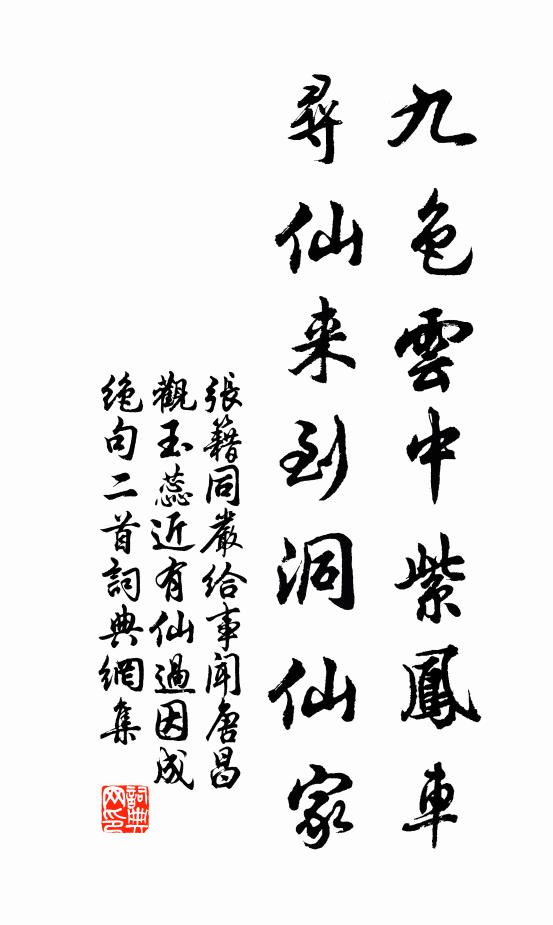 九色雲中紫鳳車
尋仙来到洞仙家
張籍同嚴給事聞唐昌
觀玉蕊近有仙過因成
絶句二首詞典網集
詞典
网印